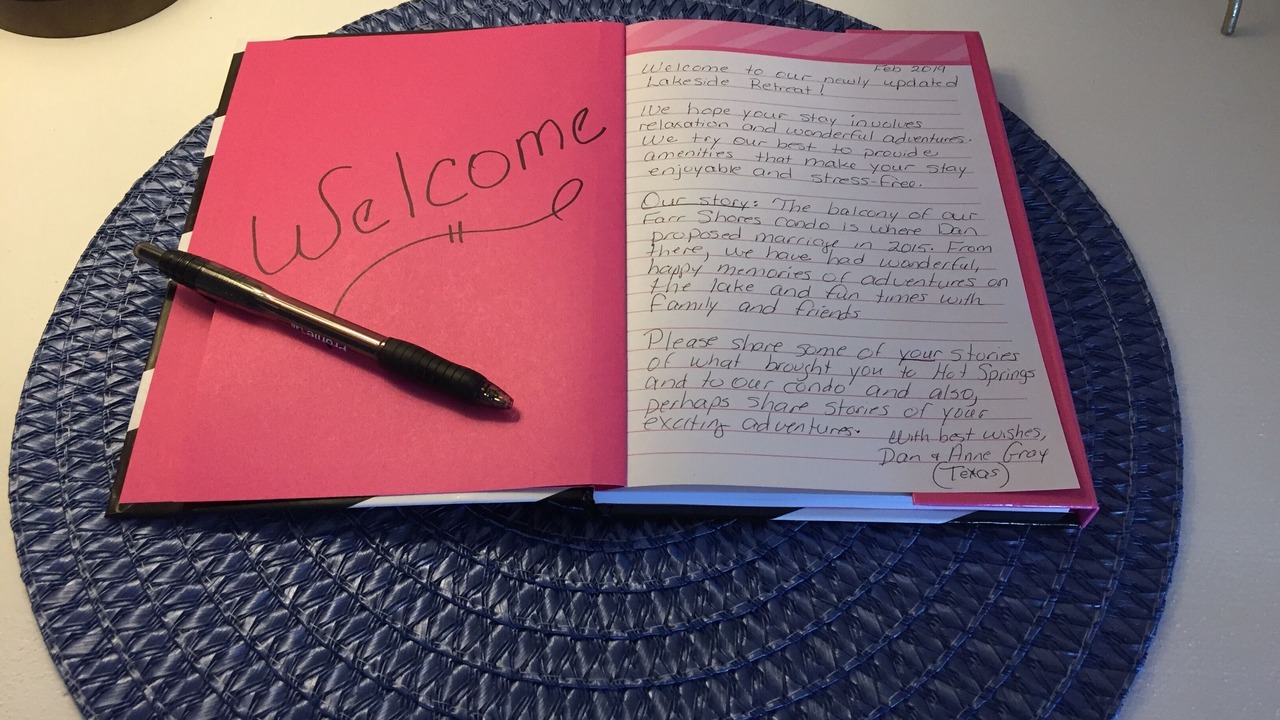 Welcome
Profile
Feb 2019
Welcome to our newly updated
Lakeside Retreat!
We hope your stay involves
relaxation and wonderful adventures.
We try our best to provide
amenities that make your stay
enjoyable and stress-free.
Our story: The balcony of our
Farr Shores condo is where Dan
proposed marriage in 2015. From
there, we have had wonderful,
happy memories of adventures on
the lake and fun times with
family and friends
Please share some of your stories
of what brought you to Hot Springs
and to our condo and also,
perhaps share stories of your
exciting adventures.
With best wishes,
Dan & Anne Gray
(Texas)